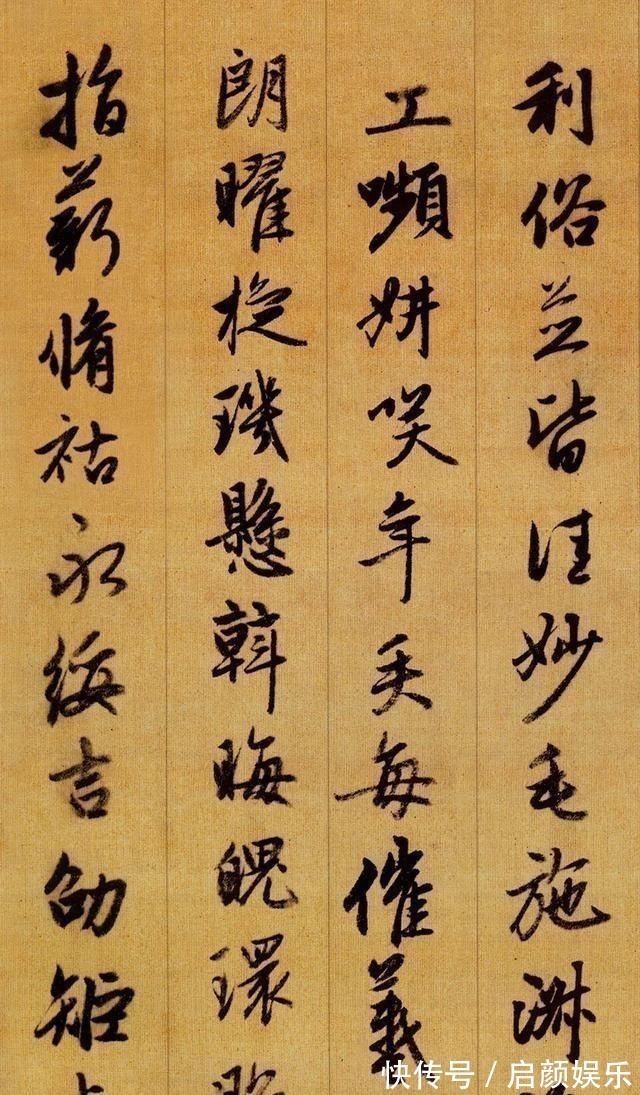 利俗並皆佳妙毛施淋
工嚬妍咲年矢每催義
朗曜旋璣懸斡晦魄環
指薪脩祜永綏吉劭矩
快传号 / 启颜娱乐